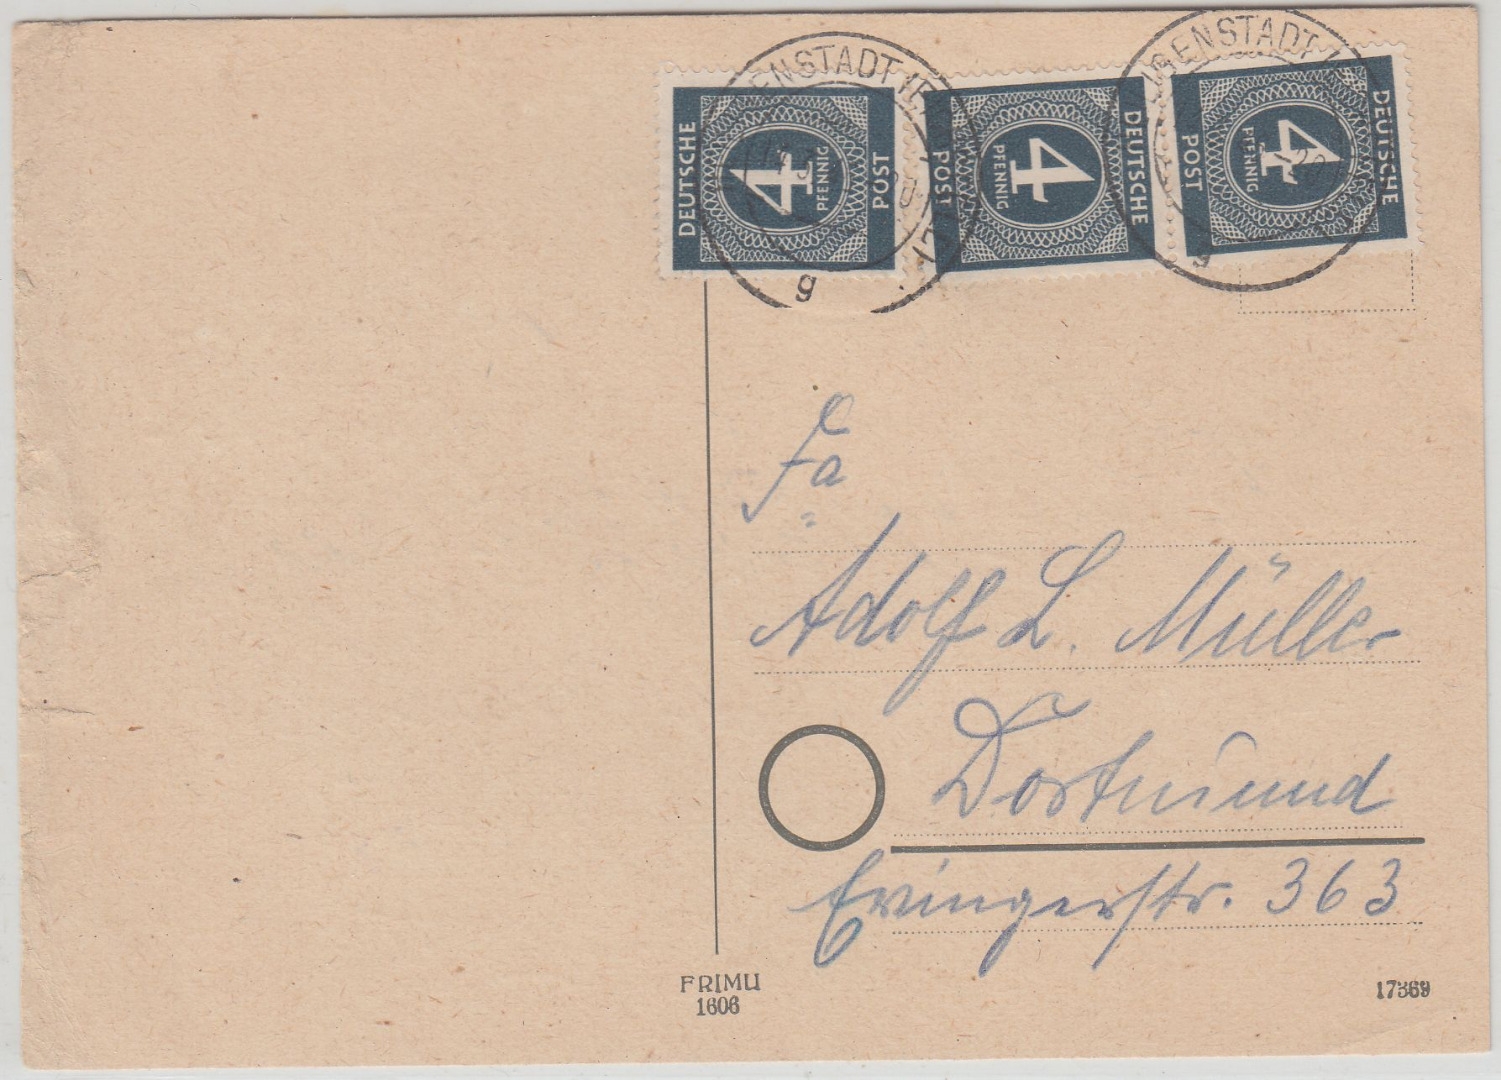 DEUTSCHE
4
PFENNIG
POST
DEUTSCHE
4
PFENNIG
POST
DEUTSCHE
4
PFENNIG
POST
g
Fa
Adolf L. Müller
Dortmund
Evingerstr. 363
FRIMU
1606
17369